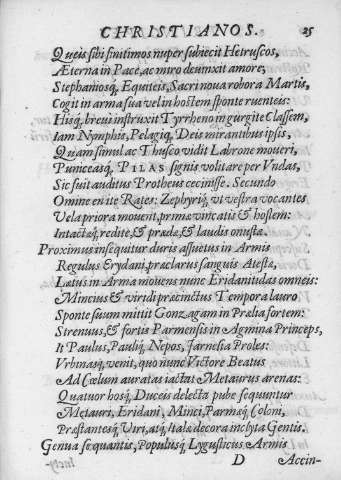 CHRISTIANOS. 25
Queis sibi finitimos nuper subiecit Hetruscos,
Æterna in Pace, ac miro deuinxit amore,
Stephaniosq́, Equiteis, Sacri noua robora Martis,
Cogit in arma sua vel in hostem sponte ruenteis:
Hisq́, breui instruxit Tyrrheno in gurgite Classem,
Iam Nymphis, Pelagiq́, Deis mirantibus ipsis,
Quam simul ac Thusco vidit Labrone moueri,
Puniceasq́, PILAS signis volitare per Vndas,
Sic fuit auditus Protheus cecinisse. Secundo
Omine en ite Rates: Zephyriq́, vt vestra vocantes
Vela priora mouent, prima vincatis & hostem:
Intactæq́, redite, & præda, & laudis onustæ.
Proximus insequitur duris assuetus in Armis
Regulus Erydani, præclarus sanguis Atestæ,
Lætus in Arma mouens nunc Eridanitidas omneis:
Mincius & viridi præcinctus Tempora lauro
Sponte suum mittit Gonzagam in Prælia fortem:
Strenuus, & fortis Parmensis in Agmina Princeps,
It Paulus, Pauliq́, Nepos, Farnesia Proles:
Vrbinasq́, venit, quo nunc Victore Beatus
Ad Cœlum auratas iactat Metaurus arenas:
Quatuor hosq́, Duceis delecta pube sequuntur
Metauri, Eridani, Minci, Parmæq́, Coloni,
Præstantesq́, Viri, atq́, Italæ decora inclyta Gentis.
Genua sequantis, Populusq́, Lygusticus Armis
D Accin-